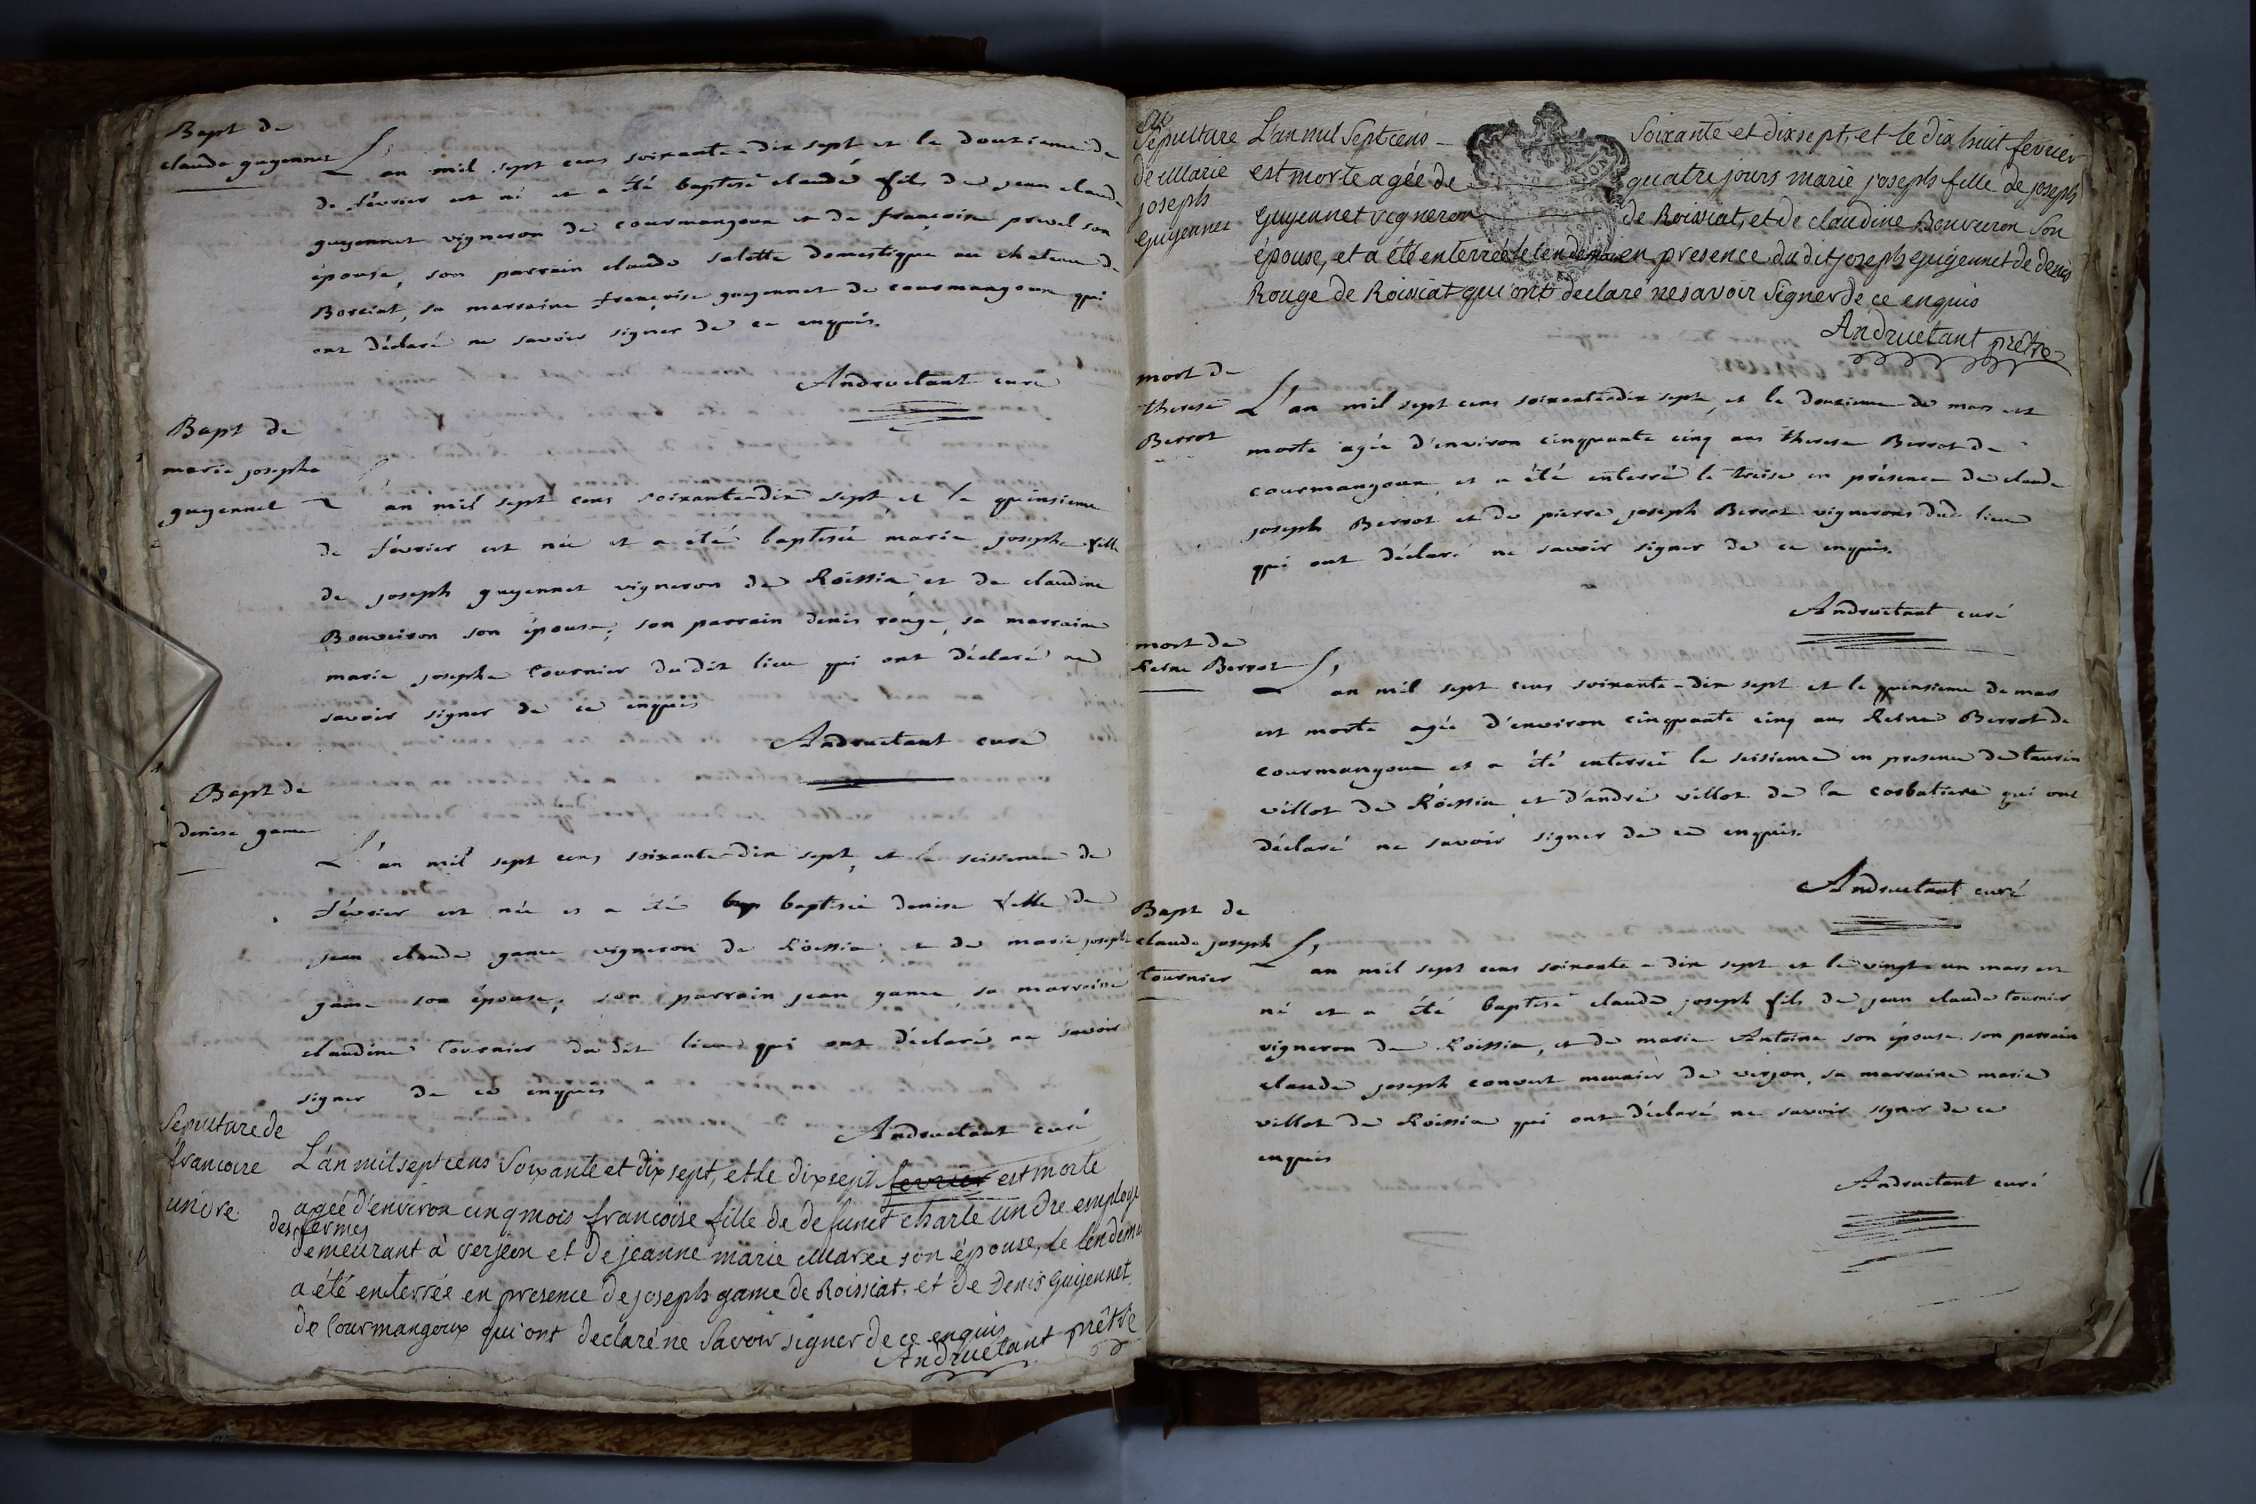 Bapt de
claude guyennet
L'an mil sept cens soixante-dix sept et le douzieme de
de février est né et a été baptisé claude fils de jean claude
guyennet vigneron de courmangoux et de françoise prevel son
épouse, son parrain claude salette domestique au chateau de
Borciat, sa marraine françoise guyennet de courmangoux qui
ont déclaré ne savoir signer de ce enquis.
Andruetant curé
Bapt de
marie josephe
guyennet
L'an mil sept cens soixante-dix sept et le quinsieme
de février est née et a été baptisée marie josephe fille
de joseph guyennet vigneron de Roissia et de claudine
Bouveiron son épouse, son parrain denis rouge, sa marraine
marie josephe tournier du dit lieu qui ont déclaré ne
savoir signer de ce enquis
Andruetant curé
Bapt de
denise game
L'an mil sept cens soixante-dix sept, et le seisieme de
février est née et a été bap baptisée denise fille de
jean claude game vigneron de Roissia, et de marie joseph
game son épouse, son parrain jean game, sa marraine
claudine tournier du dit lieu qui ont déclaré ne savoir
signer de ce enquis
Andruetant curé
Sepulture de
francoise
undre
L'an mil sept cens soixante et dix sept, et le dix sept fevrier est morte
agée d'environ cinq mois francoise fille de defunct charle undre employé
des fermes
demeurant à verjeon et de jeanne marie Maree son épouse, le lendem
a été enterrée en presence de joseph game de Roissiat, et de Denis Guijennet
de Courmangoux qui ont declaré ne savoir signer de ce enquis
Andruetant prêtre
Sepulture
de Marie
joseph
Guyennet
L'an mil sept cens soixante et dix sept, et le dix huit fevrier
est morte agée de quatre jours marie joseph fille de joseph
Guyennet vigneron de Roissiat, et de claudine Bouveron son
épouse, et a été enterrée le lendemain en presence du dit joseph guijennet de denis
Rouge de Roissiat qui ont declaré ne savoir signer de ce enquis
Andruetant prêtre
mort de
therese
Berrot
L'an mil sept cens soixante-dix sept, et le douzieme de mars est
morte agée d'environ cinquante cinq ans therese Berrot de
courmangoux, et a été enterré le treise en présence de claude
joseph Berrot et de pierre joseph Berrot vignerons dud lieu
qui ont déclaré ne savoir signer de ce enquis.
Andruetant curé
mort de
Reine Berrot
L'an mil sept cens soixante-dix sept et le quinsieme de mars
est morte agée d'environ cinquante cinq ans Reine Berrot de
courmangoux et a été enterrée le seisieme en presence de taurin
villot de Roissia et d'andré villot de la corbatiere qui ont
déclaré ne savoir signer de ce enquis.
Andruetant curé
Bapt de
claude joseph
tournier
L'an mil sept cens soixante-dix sept et le vingt-un mars est
né et a été baptisé claude joseph fils de jean claude tournier
vigneron de Roissia, et de marie Antoine son épouse son parrain
claude joseph convert meunier de verjon, sa marraine marie
villot de Roissia qui ont déclaré ne savoir signer de ce
enquis
Andruetant curé